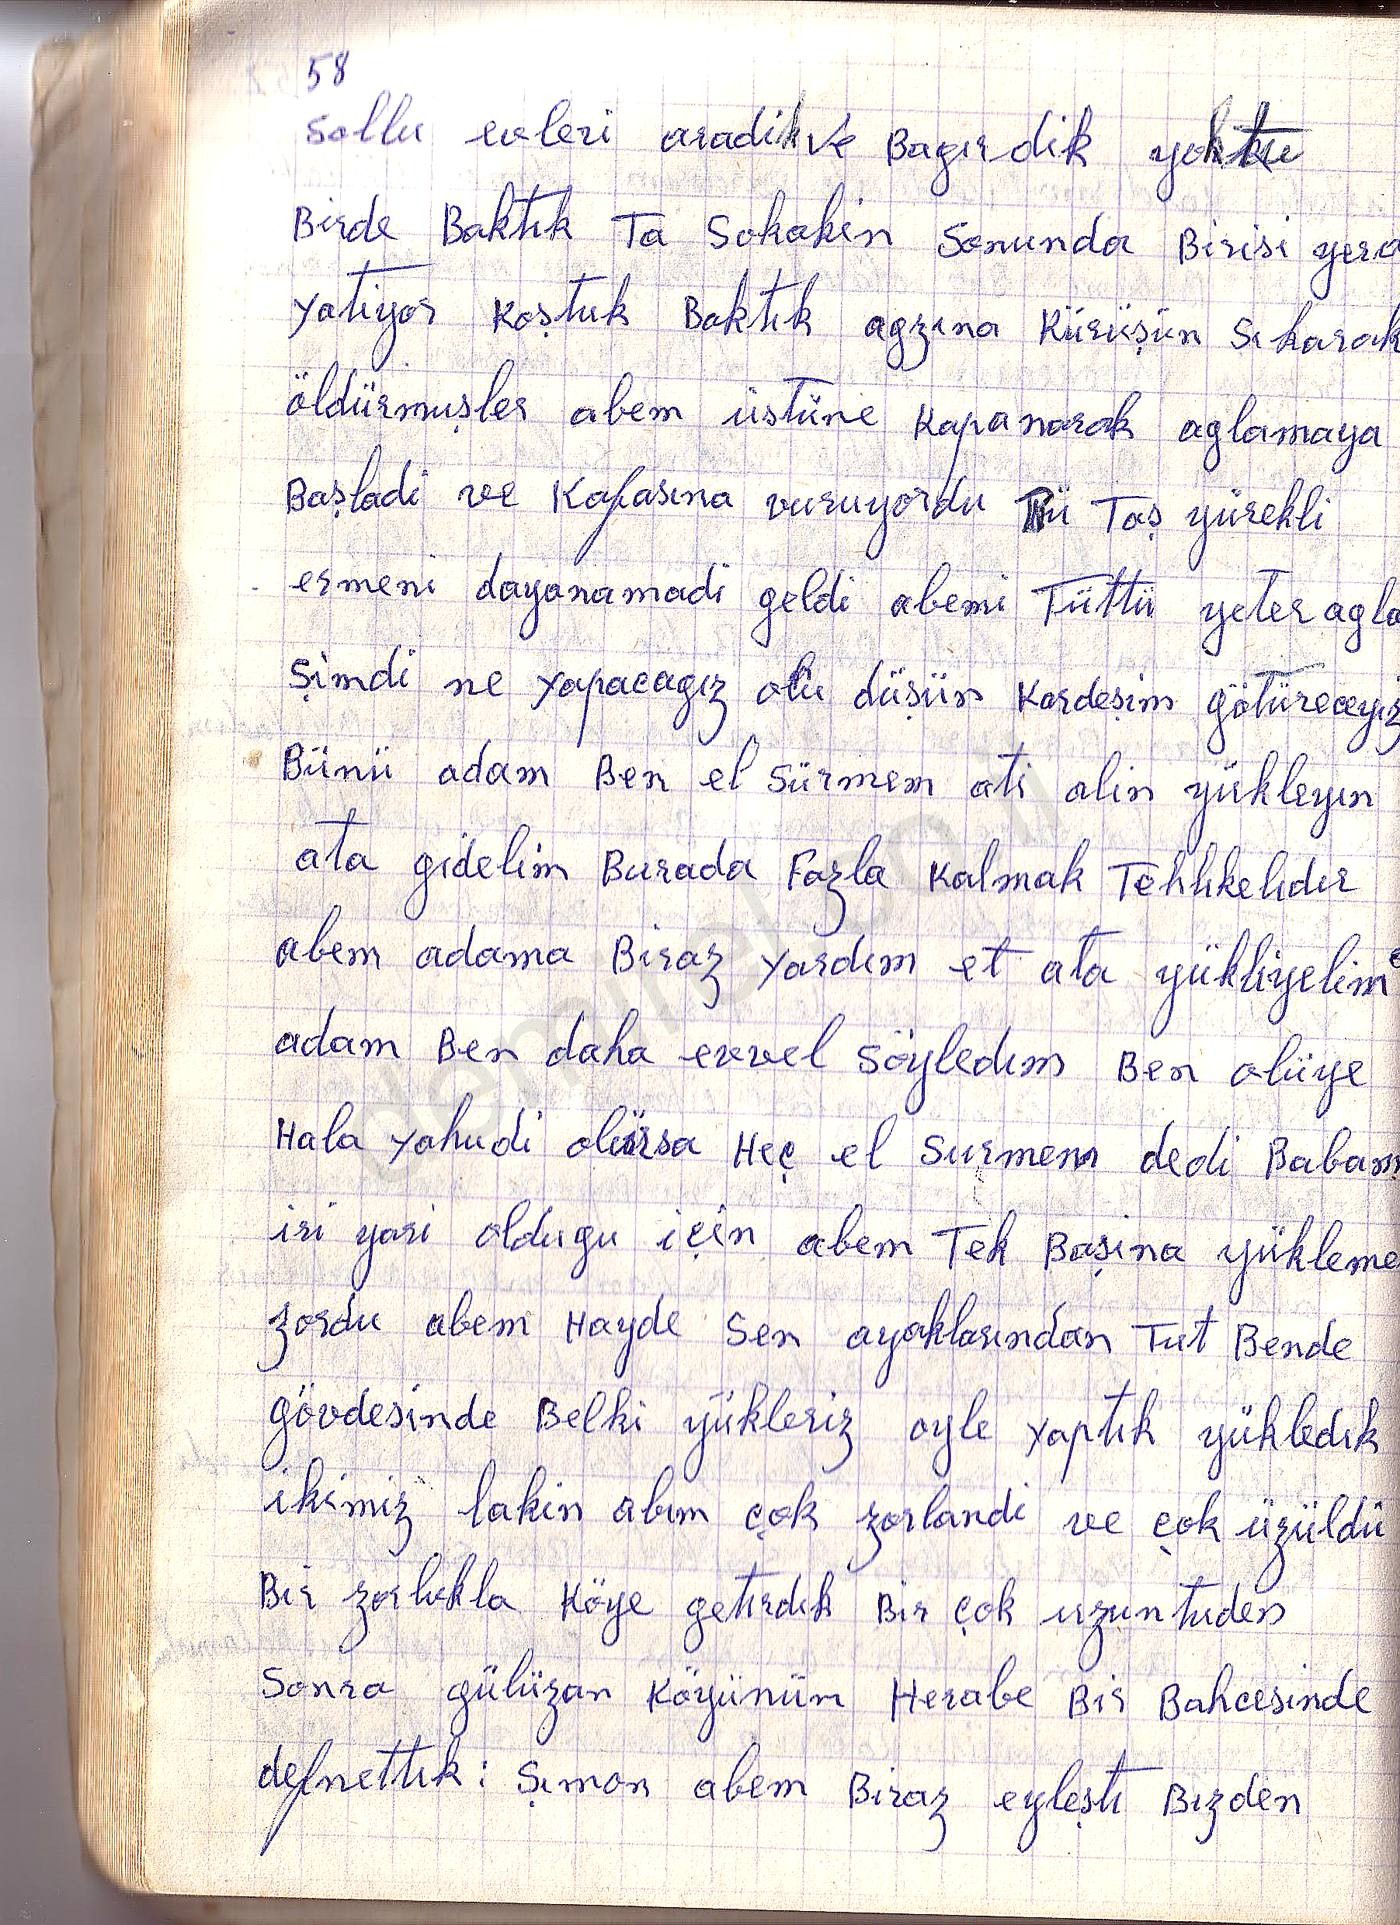 58
Sollu evleri aradik ve Bagırdik yoktu
Birde Baktık Ta Sokakin Sonunda Birisi yera
yatiyor Koştuk Baktık agzına Kürüşün Sıkarak
öldürmuşler abem üstüne Kapanarak aglamaya
Başladi ve Kafasına vuruyordu Bü Taş yürekli
ermeni dayanamadi geldi abemi Tüttü yeter agla
Şimdi ne yapacagız olu düşün Kardeşim götüreceyız
Bünü adam Ben el Sürmem ati alin yükleyın
ata gidelim Burada Fazla Kalmak Tehlıkelıdır
abem adama Biraz yardım et ata yükliyelim
adam Ben daha evvel Söyledım Ben olüye
Hala yahudi olürsa Heç el Surmem dedi Babam
iri yari oldugu için abem Tek Başina yükleme
zordu abem Hayde Sen ayaklarından Tut Bende
gövdesinde Belki yükleriz oyle yaptık yükledık
ikimiz lakin abım çok zorlandi ve çok üzüldü
Bir zorlukla Köye getırdık Bir çok uzuntuden
Sonra gülüzan Köyünün Herabe Bir Bahcesinde
defnettık: Şımon abem Biraz eyleştı Bızden
demirel.co.il